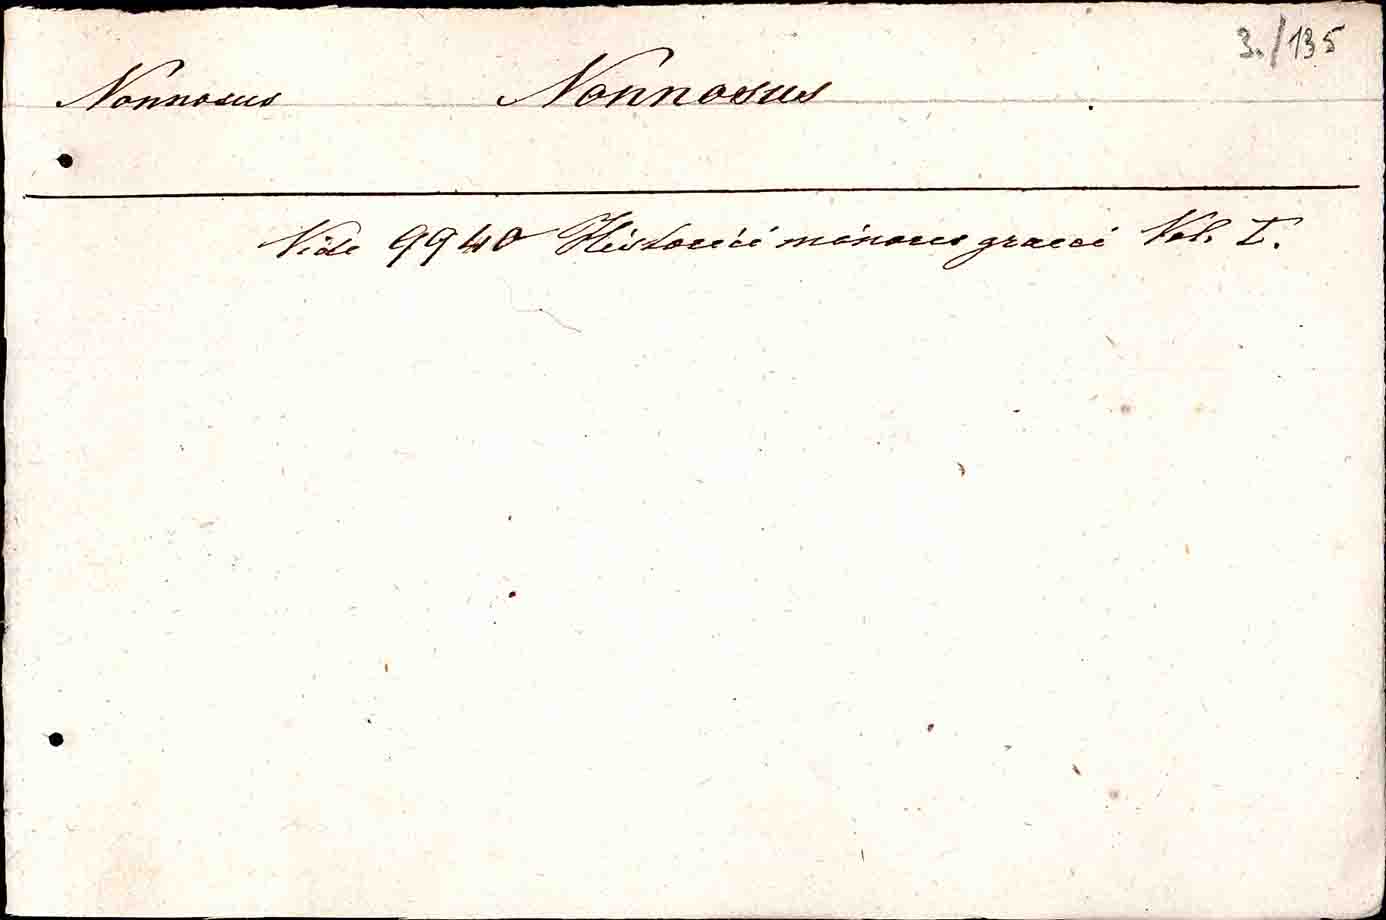 3./135
Nonnosus Nonnosus
Vide 9940 Historici minores graeci Vol. I.